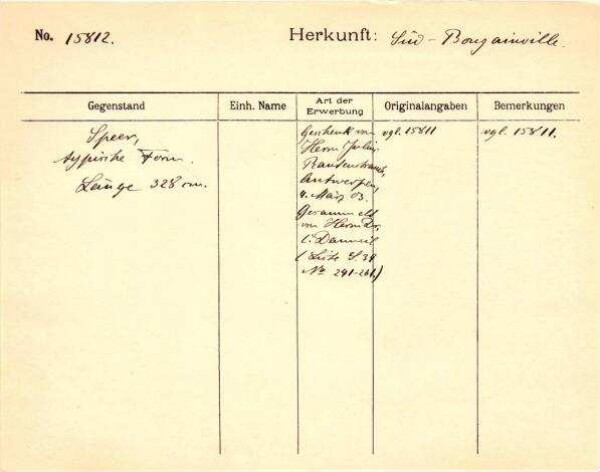 No. 15812. Herkunft: Süd-Bougainville.
Gegenstand Einh. Name Art der Erwerbung Originalangaben Bemerkungen
Speer, Geschenk von vgl. 15811 vgl. 15811.
typische Form. Herrn Julius
Länge 328 cm. Rautenstrauch,
Antwerpen,
4. März 03.
Gesammelt
von Herrn Dr.
C. Danneil
(Liste S. 39
No 241-261.)